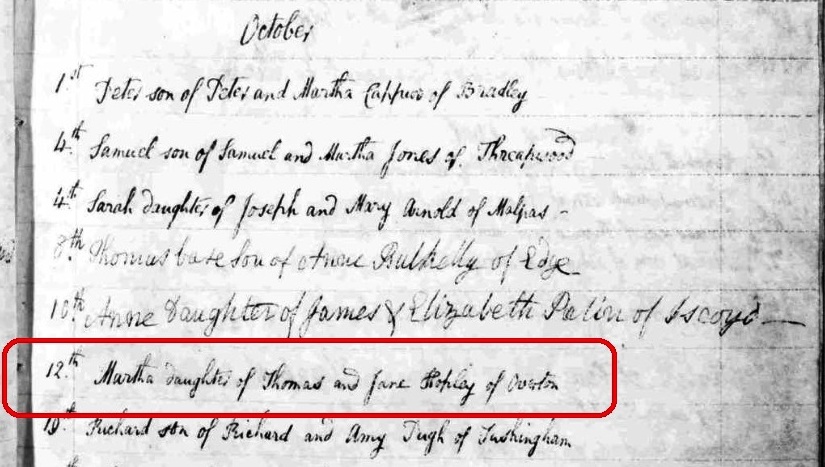 October
1st Peter son of Peter and Martha of Bradley
4th Samuel son of Samuel and Martha Jones of Threapwood
4th Sarah daughter of Joseph and Mary Arnold of Malpas -
8th Thomas base son of Anne Bulkelly of Edge
10th Anne Daughter of James & Elizabeth Palin of Iscoyd
12th Martha daughter of Thomas and Jane Hopley of Overton
Richard son of Richard and Amy Pugh of Tushingham